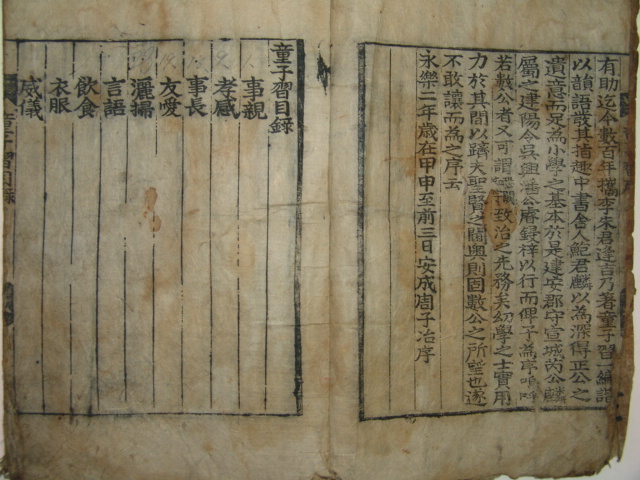 有助迄今數百年檇李朱君逢吉乃著童子習一編諧
以韻語該其指趣中書舍人範君麟以為深得正公之
遺意而足為小學之基本於是建安郡守宣城芮公麟
屬之建陽令吳興潘公錄梓以行而俾予為序嗚呼
若數公者又可謂致治之先務矣幼學之士實用
力於其間以躋夫聖賢之閫奧則固數公之所望也遂
不敢讓而為之序云
永樂二年歲在甲申至前三日安成周子冶序
童子習目錄
事親
孝感
事長
友愛
灑掃
言語
飲食
衣服
威儀